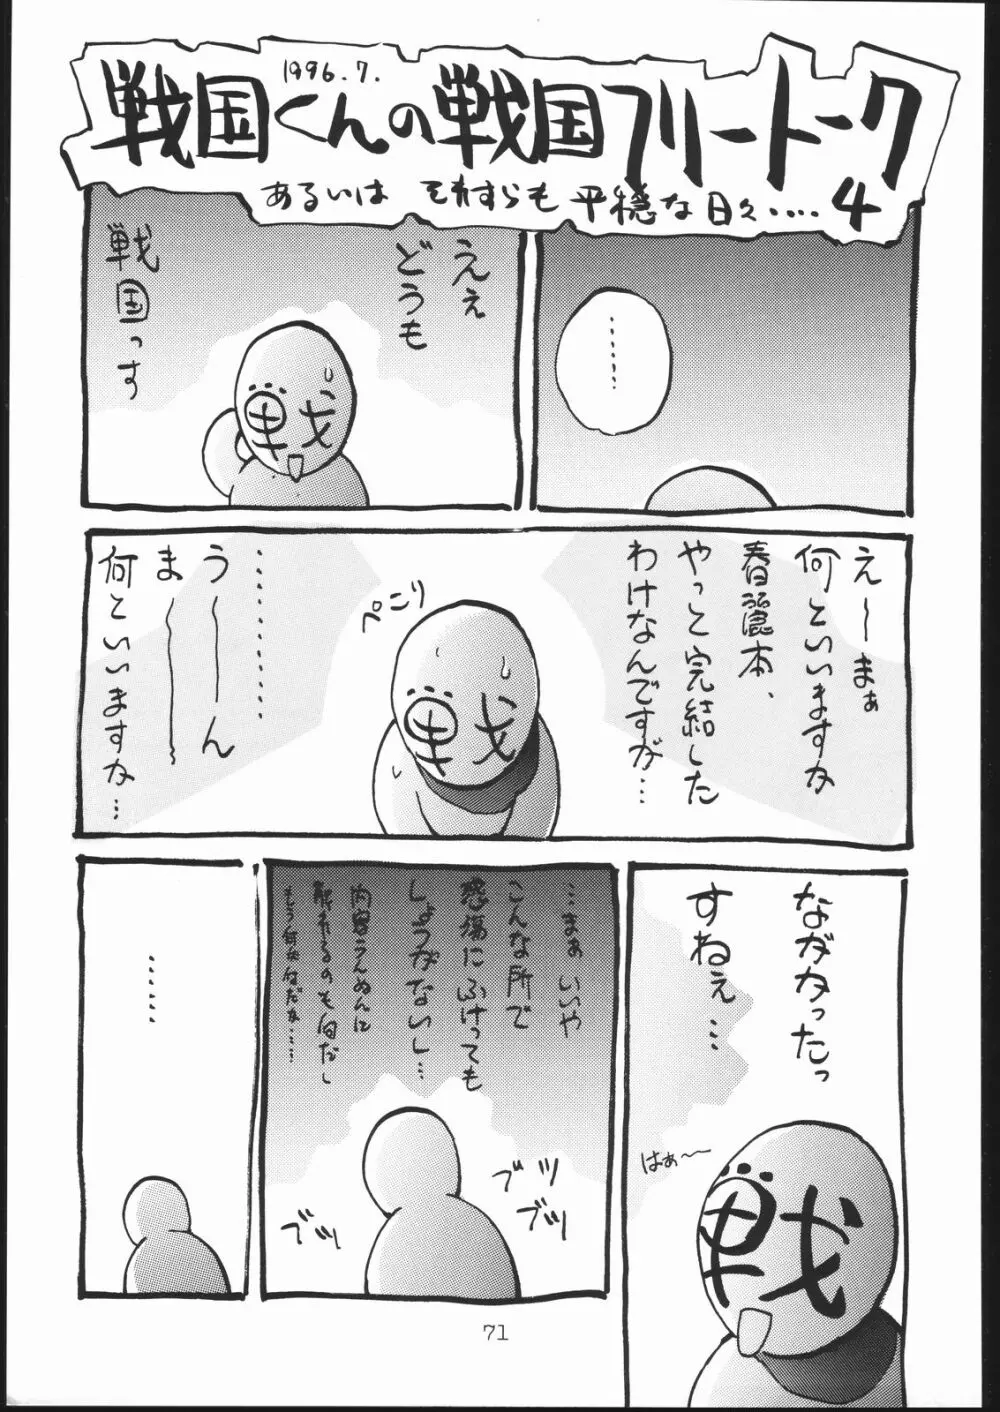 1996.7.
戦国くんの戦国フリートーク
あるいは それすらも 平穏な日々‥‥ 4
‥‥‥
ええ
どうも
戦国っす
戦
えーまぁ
何といいますか
春麗本、
やっと完結した
わけなんですが…
ぺこり
戦
‥‥‥‥
うーーん
まーーー
何といいますか…
ながかったっ
すねぇ…
はぁ〜
戦
…まぁいいや
こんな所で
感傷にふけっても
しょうがないし…
内容うんぬんに
触れるのも何だし
ブツ
ブツ
ブツ
‥‥‥
71